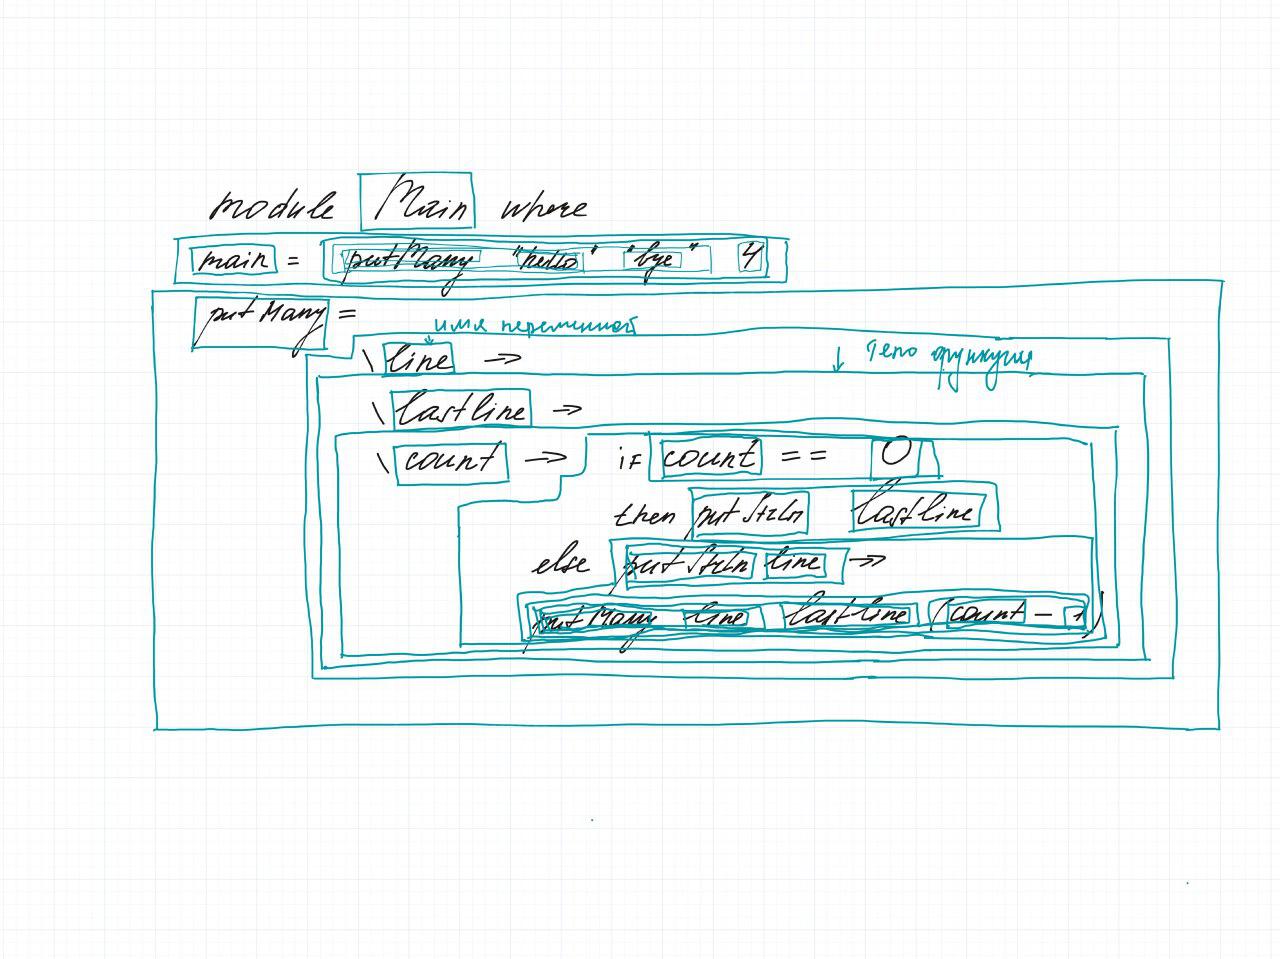 module Main where
main = putMany "hello" "bye" 4
putMany =
имя переменной
\ line ->
тело функции
\ lastline ->
\ count -> if count == 0
then putStrLn lastline
else putStrLn line >>
putMany line lastline (count - 1)